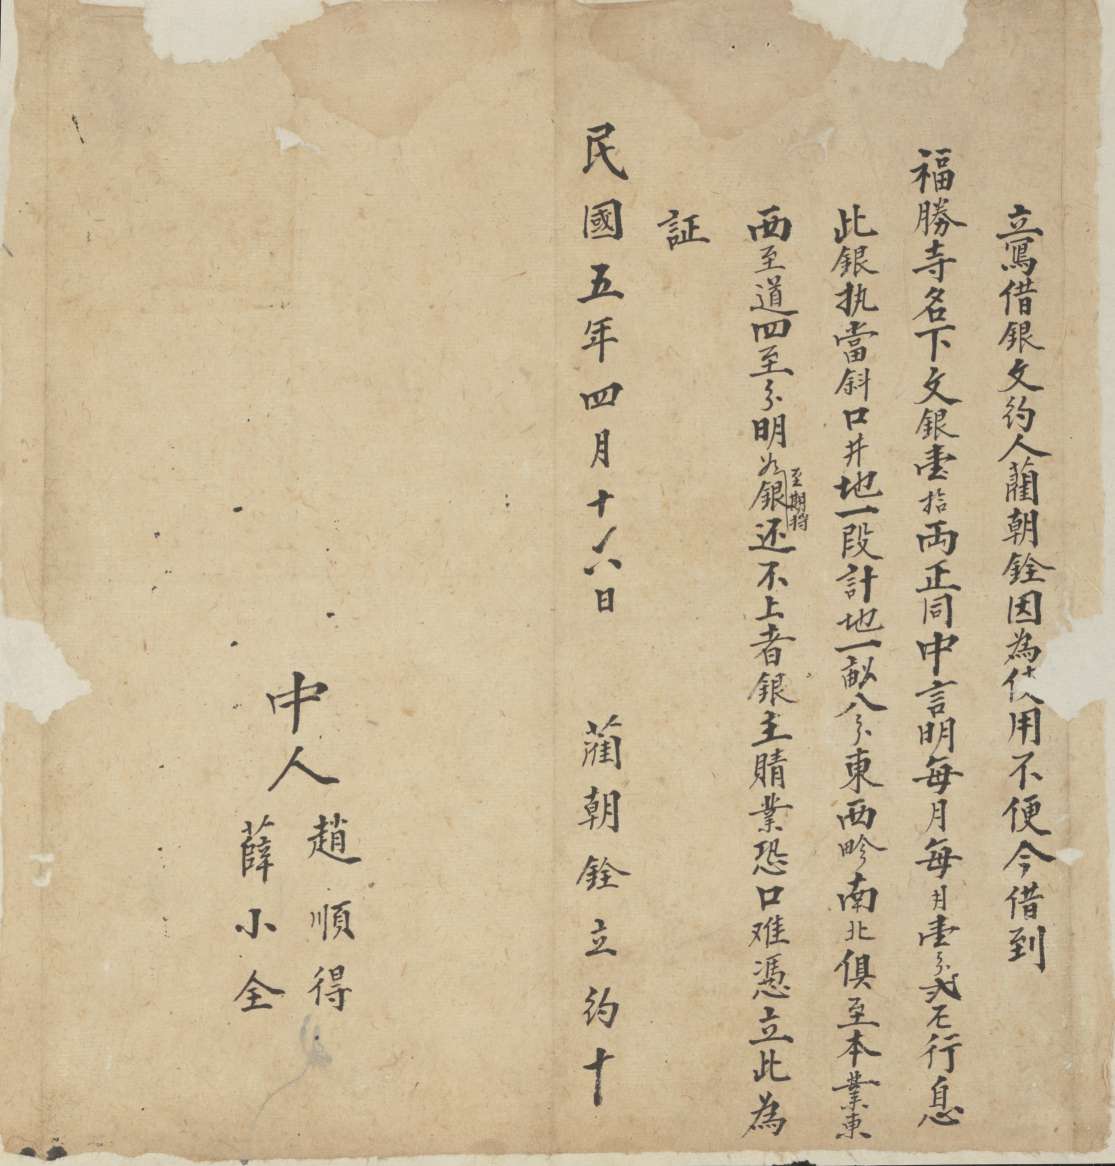 立寫借銀文约人藺朝銓因為使用不便今借到
福勝寺名下文銀壹拾両正同中言明每月每月壹分弍厘行息
此銀执當斜口井地一段計地一畝八分東西畛南北俱至本業東
西至道四至分明如至期将銀还不上者銀主睛業恐口难憑立此為
証
民國五年四月十八日 藺朝銓立约十
中人 趙順得
薛小全